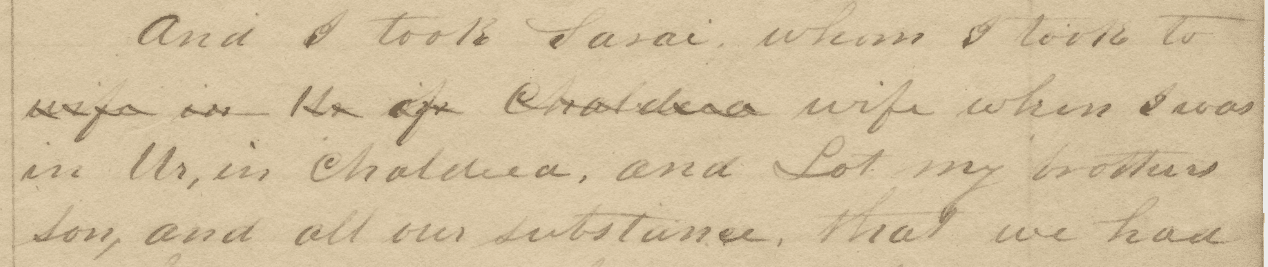 And I took Sarai, whom I took to
wife in Ur of Chaldea wife when I was
in Ur, in Chaldeea, and Lot my brothers
son, and all our substance, that we had